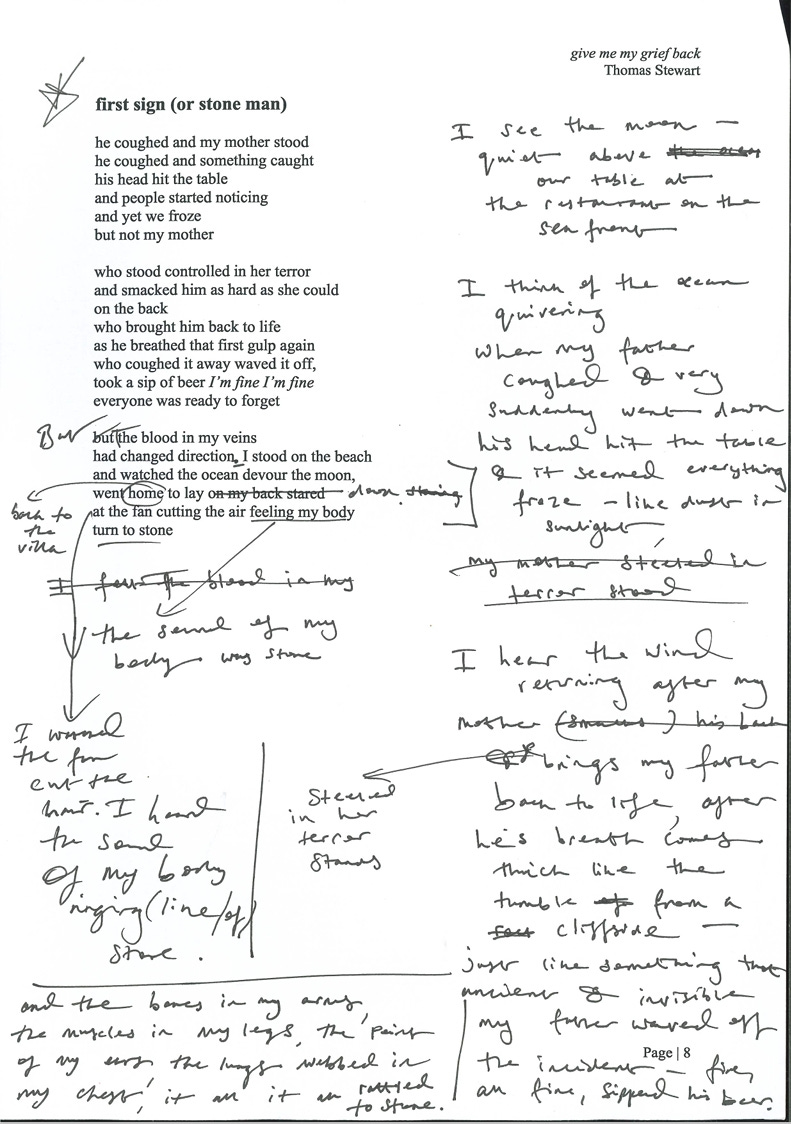 give me my grief back
Thomas Stewart
first sign (or stone man)
he coughed and my mother stood
he coughed and something caught
his head hit the table
and people started noticing
and yet we froze
but not my mother
who stood controlled in her terror
and smacked him as hard as she could
on the back
who brought him back to life
as he breathed that first gulp again
who coughed it away waved it off,
took a sip of beer I'm fine I'm fine
everyone was ready to forget
But
but the blood in my veins
had changed direction, I stood on the beach
and watched the ocean devour the moon,
went home to lay on my back stared down staring
at the fan cutting the air feeling my body
turn to stone
back to
the
villa
I felt the blood in my
the sound of my
body was stone
I watched
the fan
cut the
heat. I heard
the sound
of my body
ringing (line/of)
stone.
Steeled
in her
terror
stands
and the bones in my arms,
the muscles in my legs, the point
of my ears the lungs webbed in
my chest, it all it all rattled
to stone.
I see the moon —
quiet above the ocean
our table at
the restaurant on the
sea front
I think of the ocean
quivering
when my father
coughed & very
suddenly went down
his head hit the table
& it seemed everything
froze – like dust in
sunlight
my mother steeled in
terror stood
I hear the wind
returning after my
mother (smacks) his back
brings my father
back to life, after
he's breath comes
thick like the
tumble of from a
cliffside —
just like something that
ancient & invisible
my father waved off
the incident — fine,
am fine, sipped his beer.
Page | 8